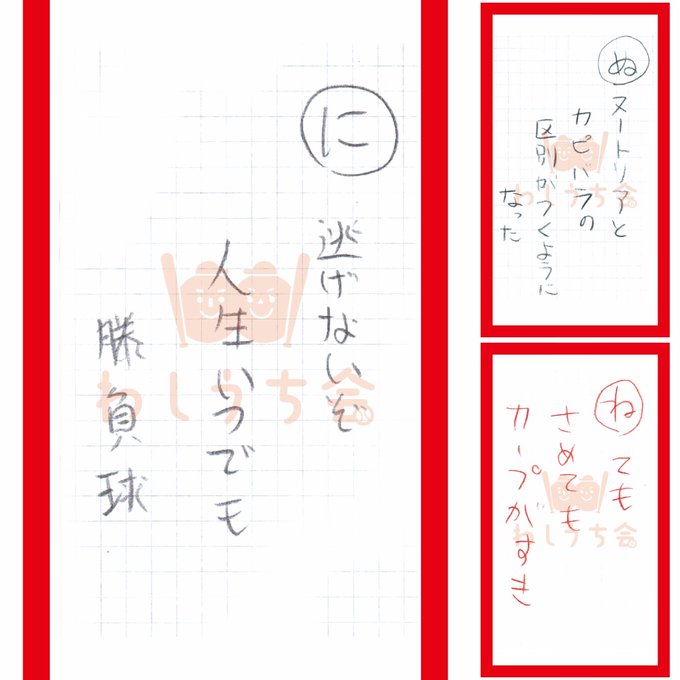 に
逃げないぞ
人生いつでも
勝負球
わしうち会
ぬ
ヌートリアと
カピバラの
区別がつくように
なった
わしうち会
ね
ても
さめても
カープがすき
わしうち会